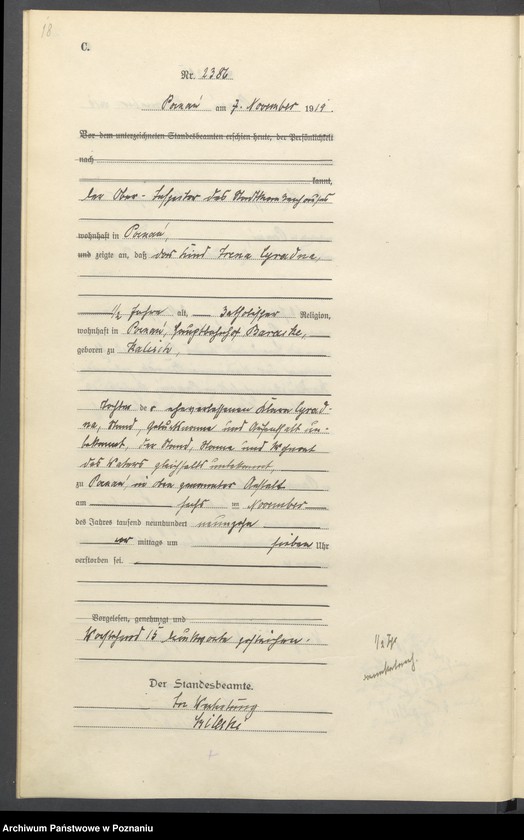 18
C.
Nr. 2386
Poznań am 7. November 1919.
Vor dem unterzeichneten Standesbeamten erschien heute, der Persönlichkeit
nach
kannt,
der Ober-Inspektor des Stadtkrankenhauses
wohnhaft in Poznań,
und zeigte an, daß das Kind Irena
1/2 Jahre alt, katholischer Religion,
wohnhaft in Poznań, Hauptbahnhof Baracke,
geboren zu Kalisch,
Tochter der
Stand, und Aufenthalt un-
bekannt, der Stand, Name und Wohnort
des Vaters gleichfalls unbekannt,
zu Poznań, in der genannten Anstalt
am sechs ten November
des Jahres tausend neunhundert neunzehn
vor mittags um sieben Uhr
verstorben sei.
Vorgelesen, genehmigt und
Vorstehend 15 Druckworte gestrichen.
Der Standesbeamte.
In Vertretung
1/2 J.
Archiwum Państwowe w Poznaniu